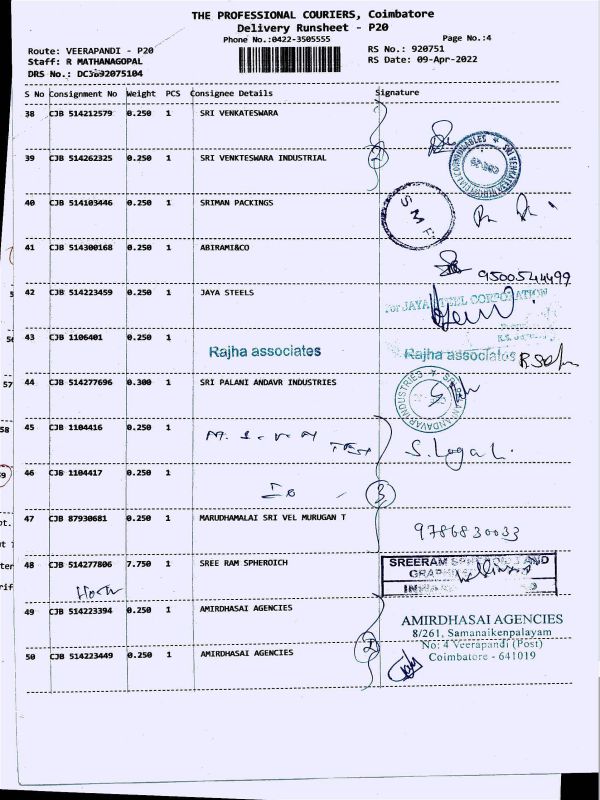 THE PROFESSIONAL COURIERS, Coimbatore
Delivery Runsheet - P20
Phone No.:0422-3505555
Page No.:4
Route: VEERAPANDI - P20
RS No.: 920751
Staff: R MATHANAGOPAL
RS Date: 09-Apr-2022
DRS No.: DC3692075104
S No Consignment No Weight PCS Consignee Details Signature
38 CJB 514212579 0.250 1 SRI VENKATESWARA
39 CJB 514262325 0.250 1 SRI VENKTESWARA INDUSTRIAL
40 CJB 514103446 0.250 1 SRIMAN PACKINGS
S M P
41 CJB 514300168 0.250 1 ABIRAMI&CO
9500544499
42 CJB 514223459 0.250 1 JAYA STEELS
For JAYA STEEL CORPORATION
43 CJB 1106401 0.250 1
Rajha associates Rajha associates
44 CJB 514277696 0.300 1 SRI PALANI ANDAVR INDUSTRIES
45 CJB 1104416 0.250 1
46 CJB 1104417 0.250 1
3
47 CJB 87930681 0.250 1 MARUDHAMALAI SRI VEL MURUGAN T
9786830033
48 CJB 514277806 7.750 1 SREE RAM SPHEROICH
SREERAM AND
49 CJB 514223394 0.250 1 AMIRDHASAI AGENCIES
AMIRDHASAI AGENCIES
8/261, Samanaikenpalayam
No: 4 Veerapandi (Post)
Coimbatore - 641019
50 CJB 514223449 0.250 1 AMIRDHASAI AGENCIES